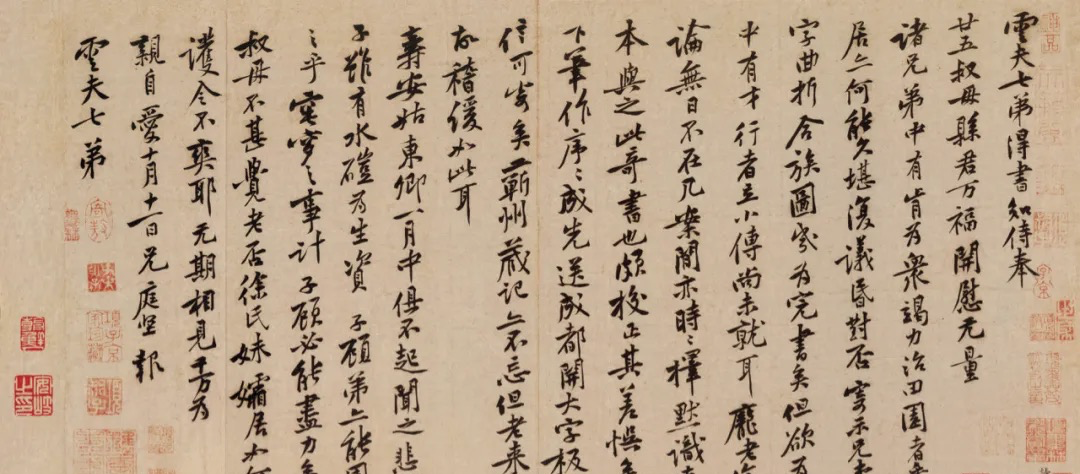 雲夫七弟得書知侍奉
廿五叔母縣君万福開慰无量
諸兄弟中有肯为衆竭力治田園者
居亦何能久堪復議昏對否寄示兄弟
字曲折合族圖幾为完書矣但欲为
中有才行者立小傳尚未就耳龐老
論無日不在几案間亦時〻擇默識
本與之此奇書也頗校正其差悞矣
下筆作序〻成先送成都開大字板
信可寄矣蘄州藏記亦不忘但老来
故稽緩如此耳
壽安姑東卿一月中俱不起聞之悲
子雖有水磑为生資子顧弟亦能周
〻乎窀穸之事計子顧必能盡力
叔母不甚覺老否徐氏妹孀居如何
護令不爽耶无期相見千万为
親自愛十月十一日兄庭堅報
雲夫七弟